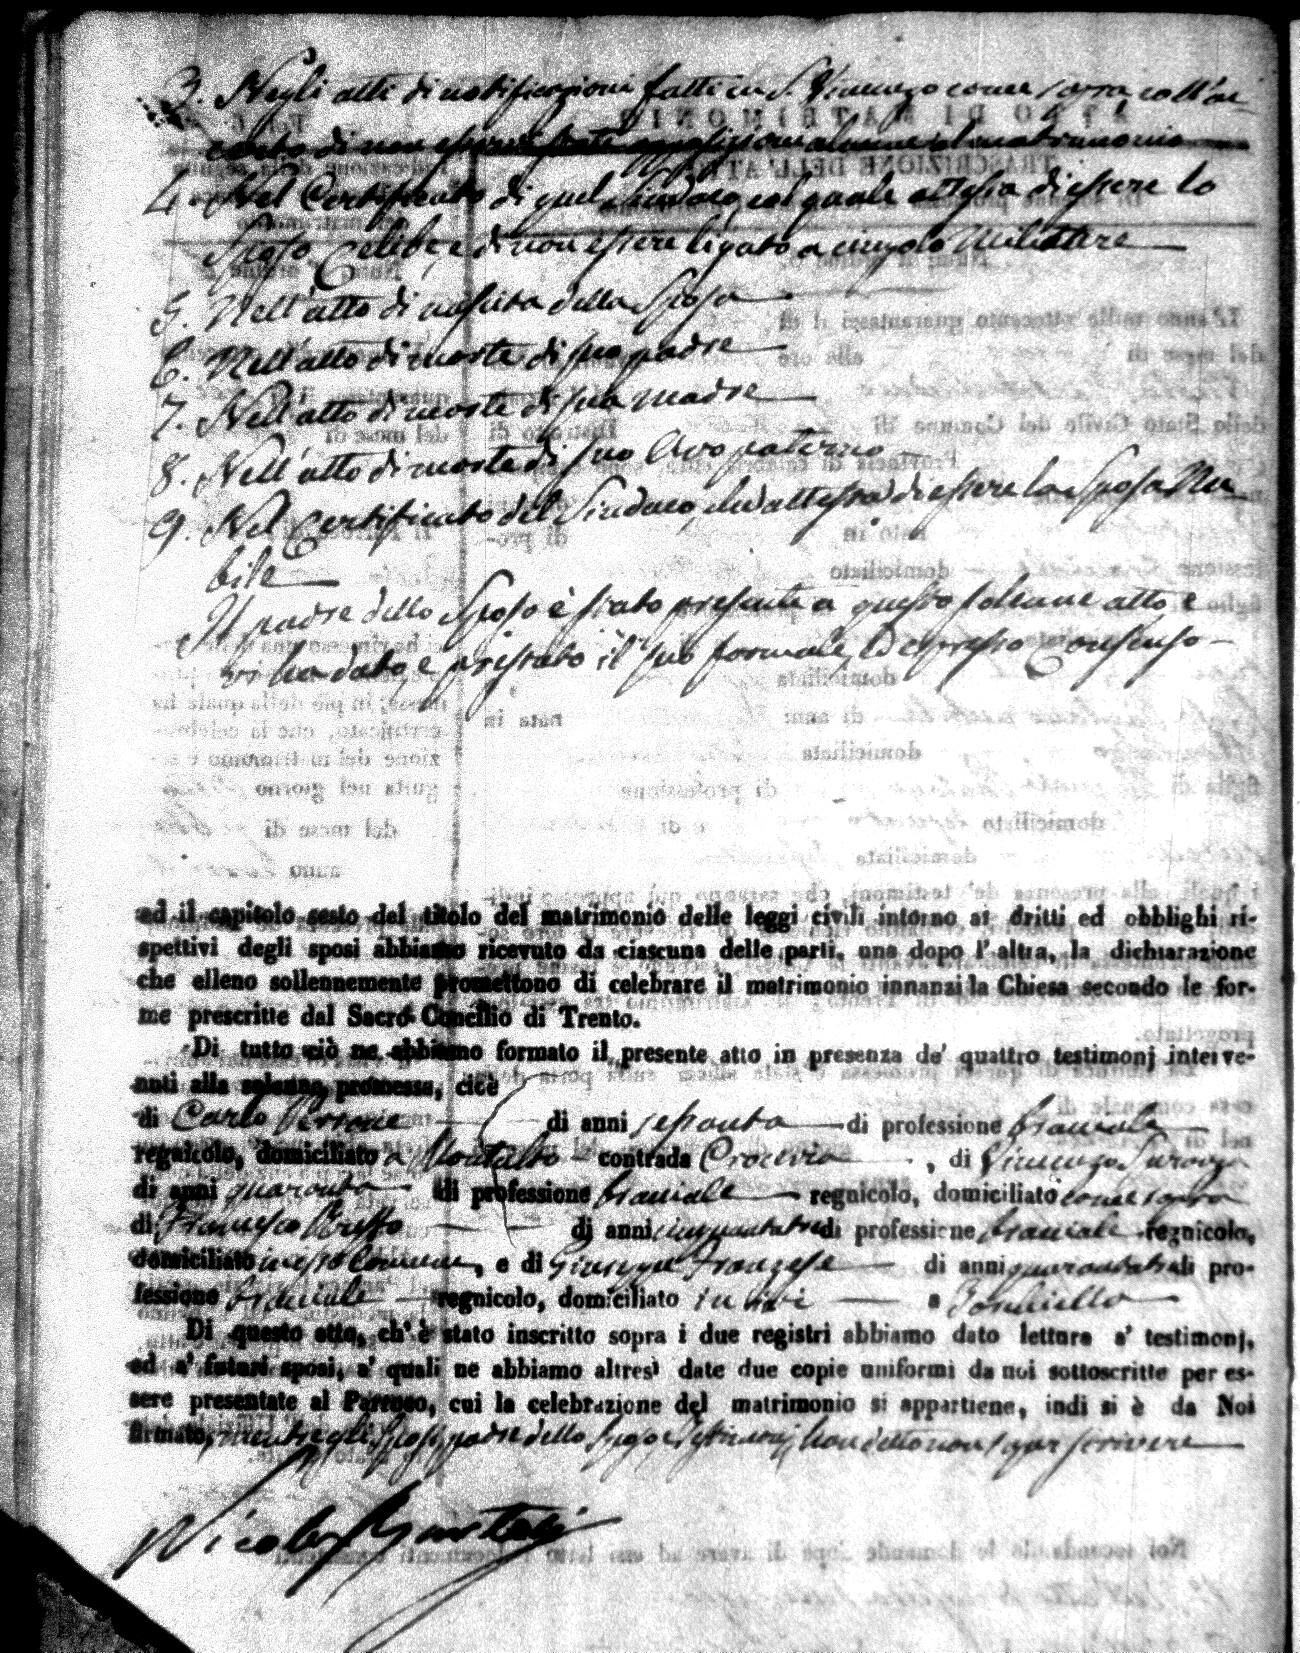 3. Negli atti di notificazioni fatte in S. Vincenzo come sopra coll'ac
certo di non essere state opposizioni alcune al matrimonio
4. Nel Certificato di quel Sindaco, col quale attesta di essere lo
Sposo Celibe, e di non essere ligato a cingolo Militare
5. Nell'atto di nascita della Sposa
6. Nell'atto di morte di suo padre
7. Nell'atto di morte di sua madre
8. Nell'atto di morte di suo Avo paterno
9. Nel Certificato del Sindaco, che attesta di essere la Sposa Nu
bile
Il padre dello Sposo è stato presente a questo solenne atto e
vi ha dato, e prestato il suo formale, ed espresso Consenso
ed il capitolo sesto del titolo del matrimonio delle leggi civili intorno ai dritti ed obblighi ri-
spettivi degli sposi abbiamo ricevuto da ciascuna delle parti, una dopo l'altra, la dichiarazione
che elleno sollennemente promettono di celebrare il matrimonio innanzi la Chiesa secondo le for-
me prescritte dal Sacro Concilio di Trento.
Di tutto ciò ne abbiamo formato il presente atto in presenza de' quattro testimonj interve-
nuti alla solenne promessa, cioè
di Carlo Perrone di anni sessanta di professione braciale
regnicolo, domiciliato a Montalto contrada Crocevia, di Vincenzo
di anni quaranta di professione braciale regnicolo, domiciliato come sopra
di Francesco di anni cinquantatre di professione braciale regnicolo,
domiciliato in esso Comune, e di Giuseppe Franzese di anni quarantatre di pro-
fessione braciale regnicolo, domiciliato in ivi a
Di questo atto, ch'è stato inscritto sopra i due registri abbiamo dato lettura a' testimonj,
ed a' futuri sposi, a' quali ne abbiamo altresì date due copie uniformi da noi sottoscritte per es-
sere presentate al Parroco, cui la celebrazione del matrimonio si appartiene, indi si è da Noi
firmato, mentre gli Sposi, padre dello Sposo e Testimonj han detto non saper scrivere
Nicola